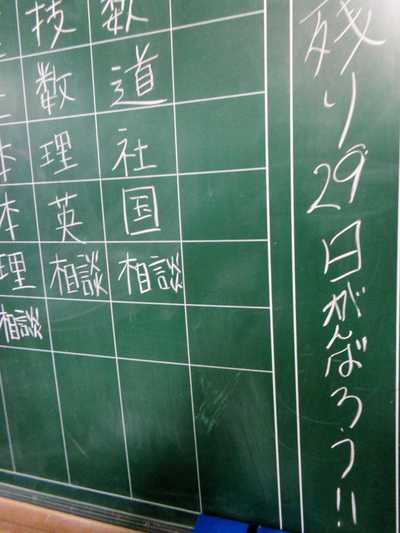 残り29日がんばろう!!
技 数
数 道
理 社
英 国
理 相談 相談
相談